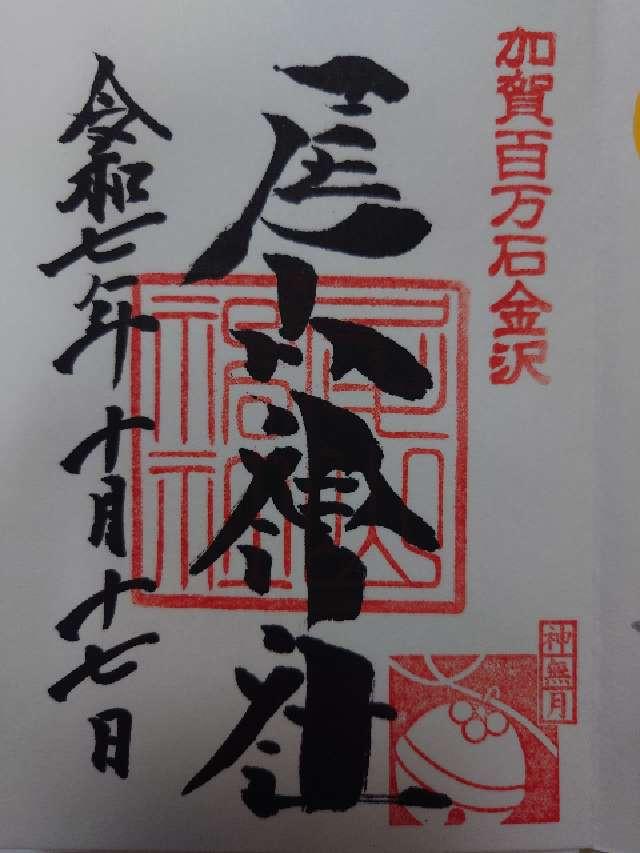 加賀百万石金沢
尾山神社
尾山神社
神無月
令和七年十月十七日